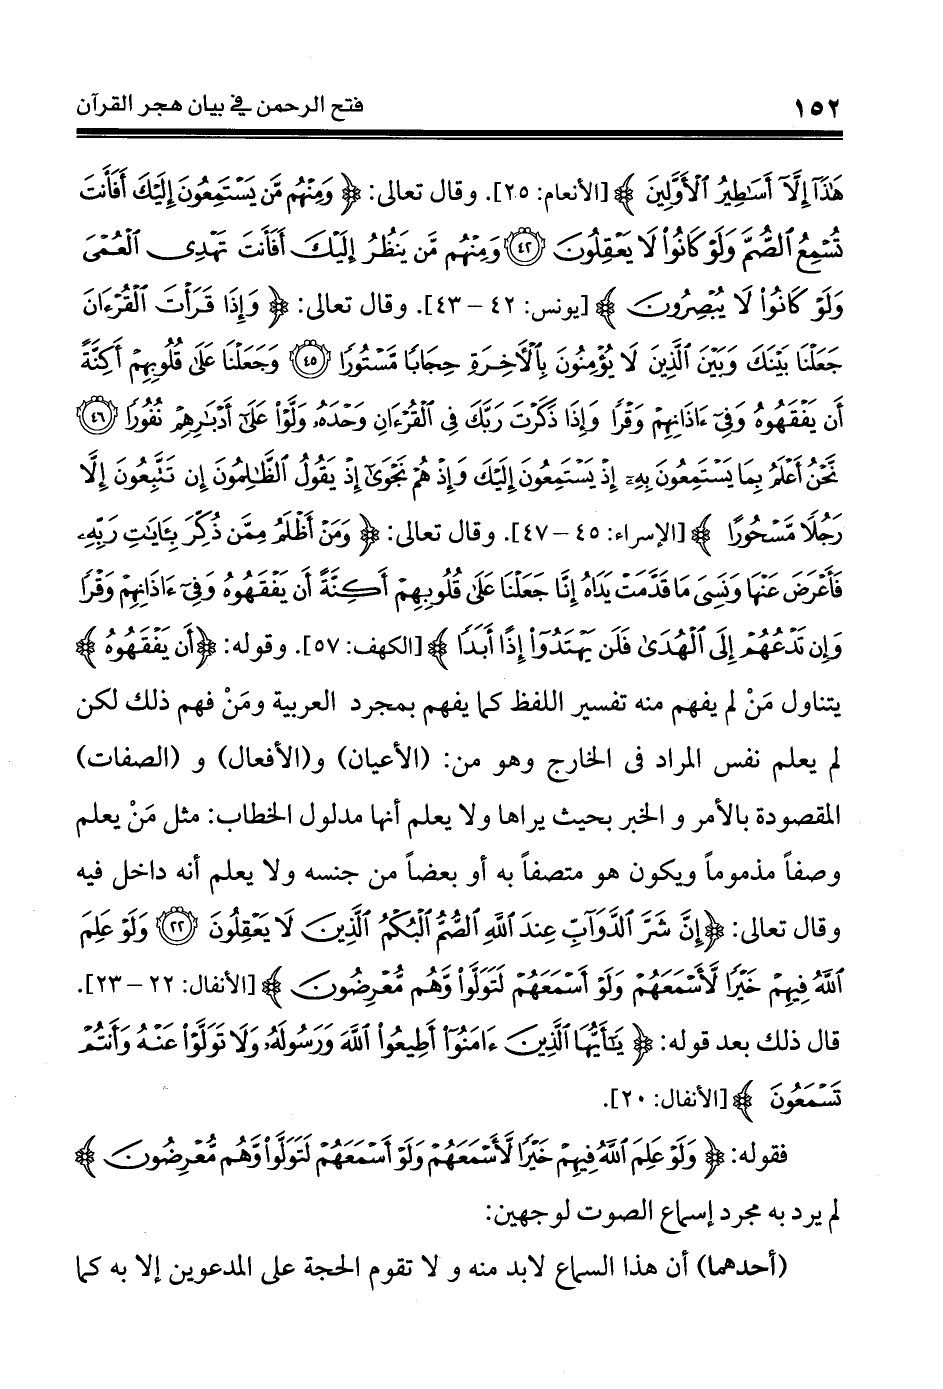 ١٥٢ فتح الرحمن في بيان هجر القرآن
هَٰذَآ إِلَّآ أَسَٰطِيرُ ٱلْأَوَّلِينَ ﴾ [الأنعام: ٢٥]. وقال تعالى: ﴿ وَمِنْهُم مَّن يَسْتَمِعُونَ إِلَيْكَ أَفَأَنتَ
تُسْمِعُ ٱلصُّمَّ وَلَوْ كَانُوا۟ لَا يَعْقِلُونَ ٤٢ وَمِنْهُم مَّن يَنظُرُ إِلَيْكَ أَفَأَنتَ تَهْدِى ٱلْعُمْىَ
وَلَوْ كَانُوا۟ لَا يُبْصِرُونَ ﴾ [يونس: ٤٢ – ٤٣]. وقال تعالى: ﴿ وَإِذَا قَرَأْتَ ٱلْقُرْءَانَ
جَعَلْنَا بَيْنَكَ وَبَيْنَ ٱلَّذِينَ لَا يُؤْمِنُونَ بِٱلْءَاخِرَةِ حِجَابًا مَّسْتُورًا ٤٥ وَجَعَلْنَا عَلَىٰ قُلُوبِهِمْ أَكِنَّةً
أَن يَفْقَهُوهُ وَفِىٓ ءَاذَانِهِمْ وَقْرًا وَإِذَا ذَكَرْتَ رَبَّكَ فِى ٱلْقُرْءَانِ وَحْدَهُۥ وَلَّوْا۟ عَلَىٰٓ أَدْبَٰرِهِمْ نُفُورًا ٤٦
نَّحْنُ أَعْلَمُ بِمَا يَسْتَمِعُونَ بِهِۦٓ إِذْ يَسْتَمِعُونَ إِلَيْكَ وَإِذْ هُمْ نَجْوَىٰٓ إِذْ يَقُولُ ٱلظَّٰلِمُونَ إِن تَتَّبِعُونَ إِلَّا
رَجُلًا مَّسْحُورًا ﴾ [الإسراء: ٤٥ – ٤٧]. وقال تعالى: ﴿ وَمَنْ أَظْلَمُ مِمَّن ذُكِّرَ بِـَٔايَٰتِ رَبِّهِۦ
فَأَعْرَضَ عَنْهَا وَنَسِىَ مَا قَدَّمَتْ يَدَاهُ إِنَّا جَعَلْنَا عَلَىٰ قُلُوبِهِمْ أَكِنَّةً أَن يَفْقَهُوهُ وَفِىٓ ءَاذَانِهِمْ وَقْرًا
وَإِن تَدْعُهُمْ إِلَى ٱلْهُدَىٰ فَلَن يَهْتَدُوٓا۟ إِذًا أَبَدًا ﴾ [الكهف: ٥٧]. وقوله: ﴿أَن يَفْقَهُوهُ ﴾
يتناول مَنْ لم يفهم منه تفسير اللفظ كما يفهم بمجرد العربية ومَنْ فهم ذلك لكن
لم يعلم نفس المراد فى الخارج وهو من: (الأعيان) و(الأفعال) و (الصفات)
المقصودة بالأمر و الخبر بحيث يراها ولا يعلم أنها مدلول الخطاب: مثل مَنْ يعلم
وصفاً مذموماً ويكون هو متصفاً به أو بعضاً من جنسه ولا يعلم أنه داخل فيه
وقال تعالى: ﴿إِنَّ شَرَّ ٱلدَّوَآبِّ عِندَ ٱللَّهِ ٱلصُّمُّ ٱلْبُكْمُ ٱلَّذِينَ لَا يَعْقِلُونَ ٢٢ وَلَوْ عَلِمَ
ٱللَّهُ فِيهِمْ خَيْرًا لَّأَسْمَعَهُمْ وَلَوْ أَسْمَعَهُمْ لَتَوَلَّوا۟ وَّهُم مُّعْرِضُونَ ﴾ [الأنفال: ٢٢ – ٢٣].
قال ذلك بعد قوله: ﴿ يَٰٓأَيُّهَا ٱلَّذِينَ ءَامَنُوٓا۟ أَطِيعُوا۟ ٱللَّهَ وَرَسُولَهُۥ وَلَا تَوَلَّوْا۟ عَنْهُ وَأَنتُمْ
تَسْمَعُونَ ﴾ [الأنفال: ٢٠].
فقوله: ﴿ وَلَوْ عَلِمَ ٱللَّهُ فِيهِمْ خَيْرًا لَّأَسْمَعَهُمْ وَلَوْ أَسْمَعَهُمْ لَتَوَلَّوا۟ وَّهُم مُّعْرِضُونَ ﴾
لم يرد به مجرد إسماع الصوت لوجهين:
(أحدهما) أن هذا السماع لابد منه و لا تقوم الحجة على المدعوين إلا به كما